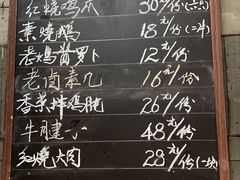 红烧鸡爪 30元/份(六只)
素烧鹅 18元/份(二冲)
老鸡萝卜 12元/份
老卤素几 16元/份
香菜拌鸡胗 26元/份
牛腱子 48元/份
红烧大肉 28元/份(一块)